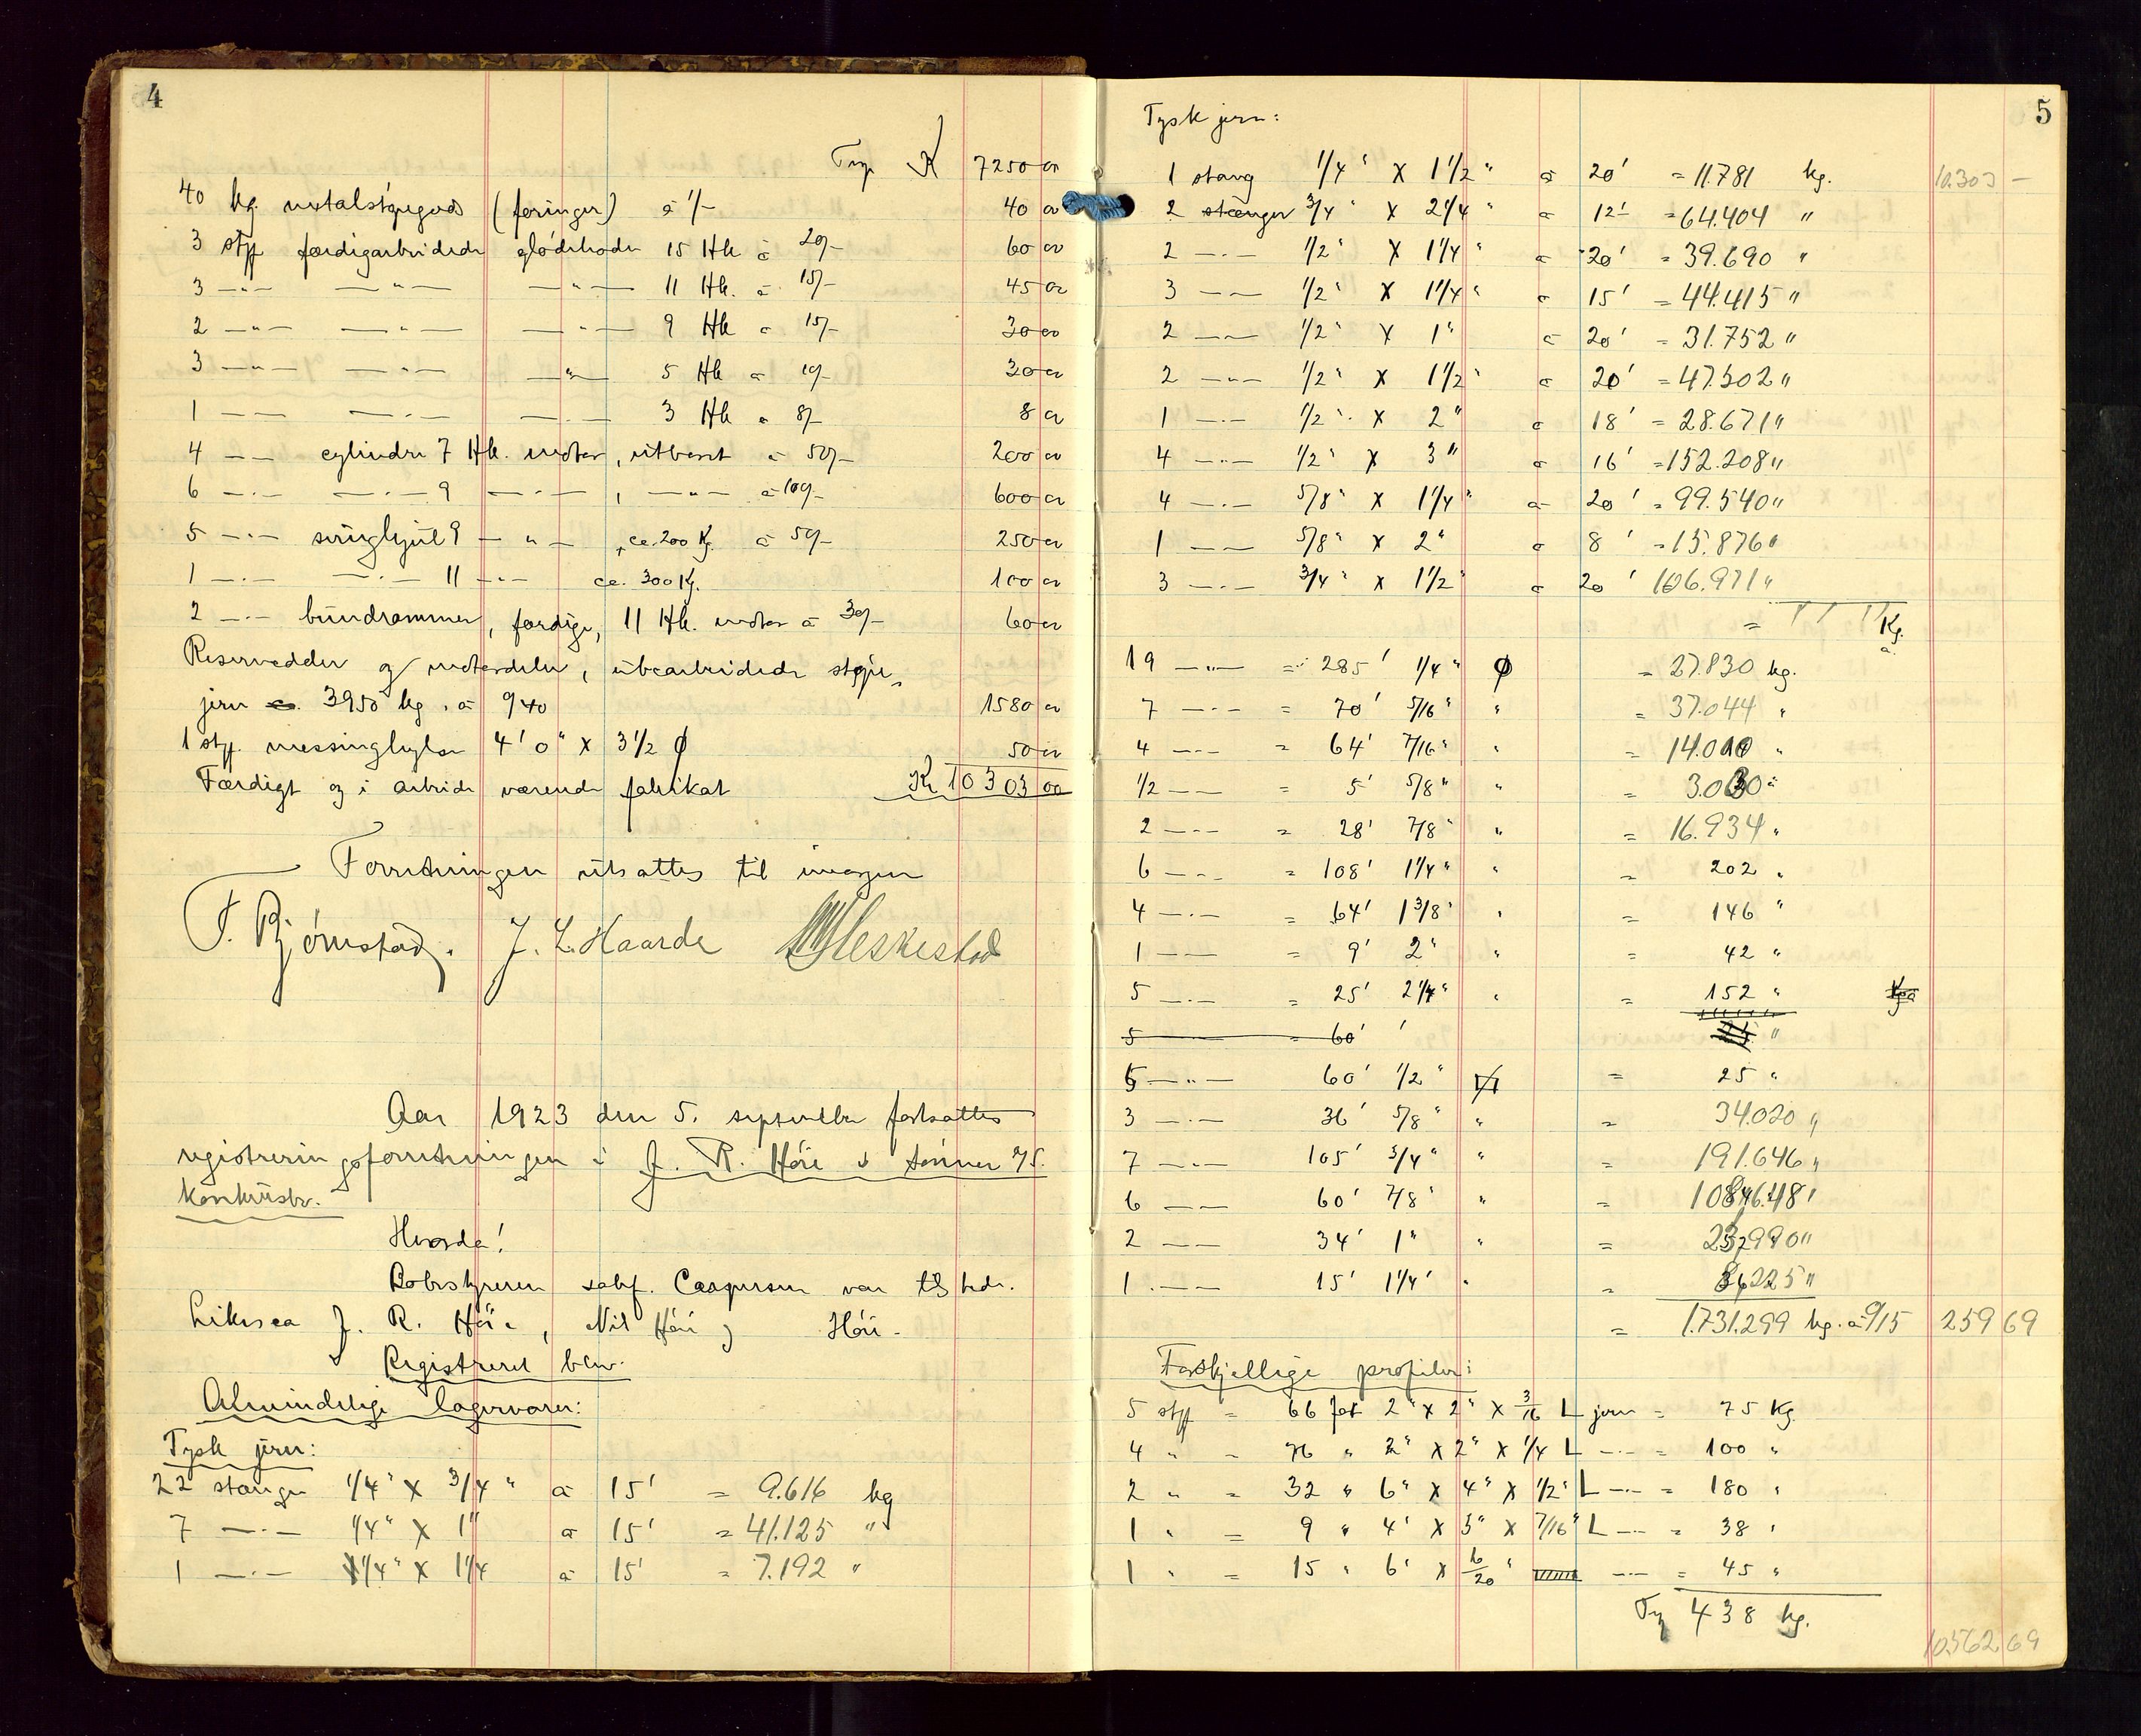 4
Trp K 7250 00
40 kg. metalstøpegods (foringer) à 1/- 40 00
3 stk færdigarbeidede glødehoder 15 Hk à 20/- 60 00
3 —"— —"— —"— 11 Hk. à 15/- 45 00
2 —"— —"— —"— 9 Hk à 15/- 30 00
3 —"— —"— —"— 5 Hk à 10/- 30 00
1 —"— —"— —"— 3 Hk à 8/- 8 00
4 —"— cylindre 7 Hk. motor, utboret à 50/- 200 00
6 —"— —"— 9 —"—, —"— à 100/- 600 00
5 —"— svinghjul 9 —"—, ca. 200 Kg. à 50/- 250 00
1 —"— —"— 11 —"— ca. 300 Kg. 100 00
2 —"— bundrammer, færdige, 11 Hk. motor à 30/- 60 00
Reservedeler og motordeler, ubearbeidede støpe-
jern ca. 3950 kg. à 0/40 1580 00
1 stk. messinghylse 4' 0" x 3 1/2 ϕ 50 00
Færdigt og i arbeide værende fabrikat Kr 10303 00
Forretningen utsattes til imorgen
T. Bjørnstad. J. L. Haarde Meskestad
Aar 1923 den 5. september fortsattes
registreringsforretningen i J. R. Høie & sønner A/S.
konkursbo.
Hvorda!
Bobestyreren sakf. Caspersen var tilstede.
Likesaa J. R. Høie, Nils Høie og Høie.
Registreret blev.
Almindelige lagervarer:
Tysk jern:
22 stænger 1/4" x 3/4" à 15' = 9.616 kg
7 —"— 1/4" x 1" à 15' = 41.125 "
1 —"— 1/4" x 1 1/4 à 15' = 7.192 "
5
Tysk jern:
1 stang 1/4" x 1 1/2" à 20' = 11.781 kg. 10.303 —
2 stænger 3/4" x 2 1/4" à 12' = 64.404 "
2 —"— 1/2" x 1 1/4" à 20' = 39.690 "
3 —"— 1/2" x 1 1/4" à 15' = 44.415 "
2 —"— 1/2" x 1" à 20' = 31.752 "
2 —"— 1/2" x 1 1/2" à 20' = 47.502 "
1 —"— 1/2" x 2" à 18' = 28.671 "
4 —"— 1/2" x 3" à 16' = 152.208 "
4 —"— 5/8" x 1 1/4" à 20' = 99.540 "
1 —"— 5/8" x 2" à 8' = 15.876 "
3 —"— 3/4" x 1 1/2" à 20' 106.971 "
= Kg. à
19 —"— = 285' 1/4" ϕ = 27.830 kg.
7 —"— = 70' 5/16" " = 37.044 "
4 —"— = 64' 7/16" " = 14.010 "
1/2 —"— = 5' 5/8" " = 3.030 "
2 —"— = 28' 7/8" " = 16.934 "
6 —"— = 108' 1 1/4" " = 202 "
4 —"— = 64' 1 3/8" " = 146 "
1 —"— = 9' 2" " = 42 "
5 —"— = 25' 2 1/4" " = 152 " Kg à
5 — = 60' ' 25 "
5 —"— 60' 1/2" = 25 "
3 —"— 36' 5/8" " = 34.020 "
7 —"— 105' 3/4" " = 191.646 "
6 —"— 60' 7/8" " =
2 —"— 34' 1" " =
1 —"— 15' 1 1/4" " = 36,225 "
= 1.731.299 kg. à 0/15 259 69
Forskjellige profiler:
5 stk = 66 fot 2" x 2" x 3/16 L jern = 75 Kg.
4 " = 76 " 2" x 2" x 1/4 L —"— = 100 "
2 " = 32 " 6" x 4" x 1/2" L —"— = 180 "
1 " = 9 " 4" x 3" x 7/16" L —"— = 38 "
1 " = 15 " 6" x 6/20" —"— = 45 "
Trp 438 kg.
10562 69